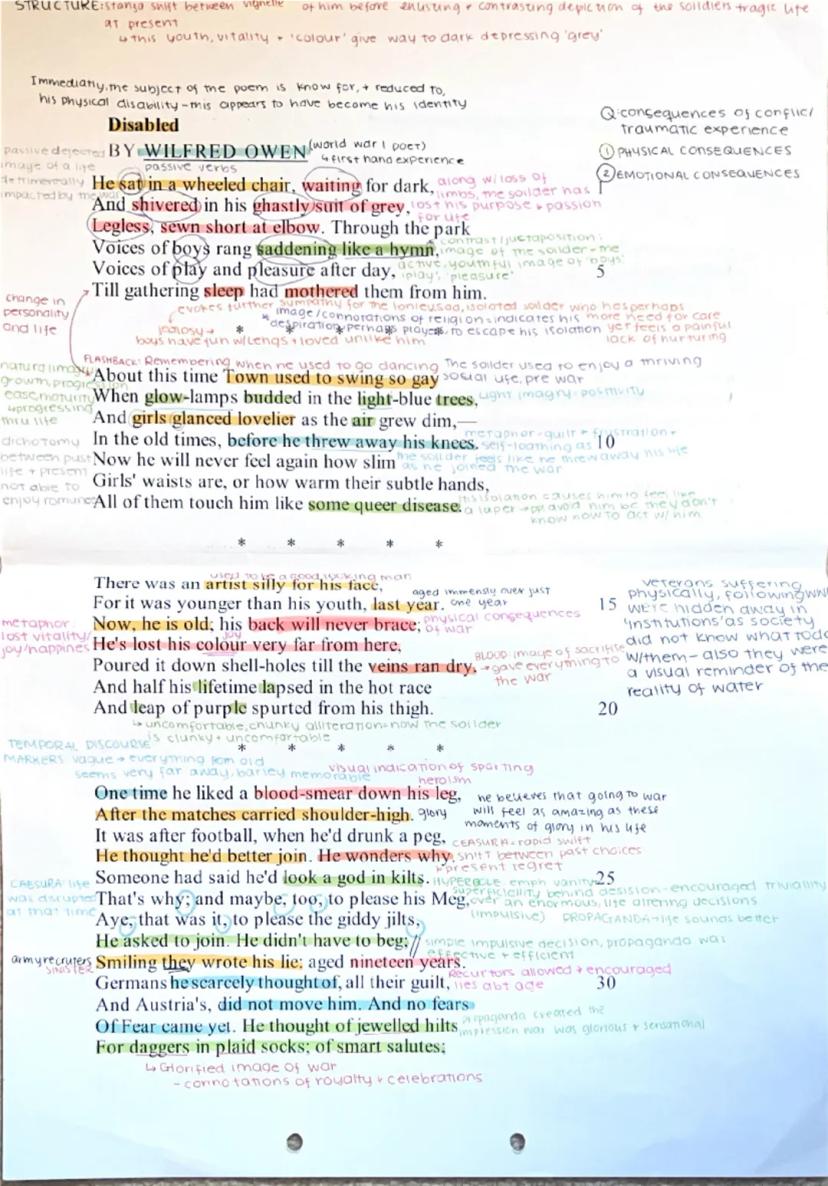 STRUCTURE: stanza shift between vignette of him before enlisting + contrasting depiction of the soildiers tragic life
at present
↳ this youth, vitality + 'colour' give way to dark depressing 'grey'
Immediatly, the subject of the poem is know for, + reduced to,
his physical disability - this appears to have become his identity
Q: consequences of conflic/
traumatic experience
① PHYSICAL CONSEQUENCES
② EMOTIONAL CONSEQUENCES
Disabled
BY WILFRED OWEN (world war 1 poet)
↳ first hand experience
passive dejected
image of a life
detrimentally
impacted by the war
passive verbs
He sat in a wheeled chair, waiting for dark,
along w/ loss of
limbs, the soilder has
And shivered in his ghastly suit of grey,
lost his purpose + passion
for life
Legless, sewn short at elbow. Through the park
Voices of boys rang saddening like a hymn,
contrast/juxtaposition:
image of the soilder - me
Voices of play and pleasure after day,
active, youthful image of 'boys'
'play', 'pleasure'
5
Till gathering sleep had mothered them from him.
change in
personality
and life
evokes further sympathy for the lonley, sad, isolated soilder who has perhaps
image/connotations of religion = indicates his more need for care
despiration, perhaps prayer, to escape his isolation yet feels a painful
lack of nurturing
jealosy →
boys have fun w/ legs + loved unlike him
* * * * *
FLASHBACK: Remembering when he used to go dancing
The soilder used to enjoy a thriving
social life, pre war
natural imagry
growth, progression
ease, maturity
↳ progressing
thru life
About this time Town used to swing so gay
When glow-lamps budded in the light-blue trees,
light imagry - positivity
And girls glanced lovelier as the air grew dim,—
In the old times, before he threw away his knees.
metaphor - guilt + frustration +
self-loathing as
10
the soilder feels like he threw away his life
as he joined the war
dichotomy
between past
life + present
not able to
enjoy romance
Now he will never feel again how slim
Girls' waists are, or how warm their subtle hands,
All of them touch him like some queer disease.
his isolation causes him to feel like
a leper → ppl avoid him bc they don't
know how to act w/ him
* * * * *
used to be a good looking man
There was an artist silly for his face,
aged immensly over just
one year
For it was younger than his youth, last year.
15
Now, he is old; his back will never brace;
physical consequences
of war
metaphor:
lost vitality/
joy/happines
joy
He's lost his colour very far from here,
Poured it down shell-holes till the veins ran dry,
BLOOD image of sacrifise
→ gave everything to
the war
And half his lifetime lapsed in the hot race
And leap of purple spurted from his thigh.
20
veterans suffering
physically, following WW1
were hidden away in
'institutions' as society
did not know what to do
w/ them - also they were
a visual reminder of the
reality of water
↳ uncomfortable, chunky alliteration = now the soilder
is clunky + uncomfortable
* * * * *
TEMPORAL DISCOURSE
MARKERS vague → everything from old
seems very far away, barley memorable
visual indication of sporting
heroism
One time he liked a blood-smear down his leg,
After the matches carried shoulder-high.
glory
he believes that going to war
will feel as amazing as these
moments of glory in his life
It was after football, when he'd drunk a peg,
He thought he'd better join. He wonders why.
CEASURA = rapid swift
shift between past choices
+ present regret
Someone had said he'd look a god in kilts.
25
HYPERBOLE emph vanity +
superficiality behind desision - encouraged triviality
over an enormous, life altering decisions
(impulsive) PROPAGANDA → life sounds better
CAESURA: life
was disrupted
at that time
That's why; and maybe, too, to please his Meg,
Aye, that was it, to please the giddy jilts,
He asked to join. He didn't have to beg;
simple impulsive decision, propaganda was
effective + efficient
army recruters
SINISTER
Smiling they wrote his lie: aged nineteen years.
Recurtors allowed + encouraged
lies abt age
Germans he scarcely thought of, all their guilt,
30
And Austria's, did not move him. And no fears
Of Fear came yet. He thought of jewelled hilts
propaganda created the
impression war was glorious + sensational
For daggers in plaid socks; of smart salutes;
↳ Glorified image of war
- connotations of royalty + celebrations